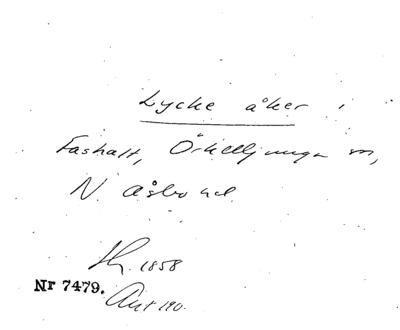 Lycke åker i
Fashalt, Örkelljunga sn,
N. Åsbo hd.
1858
Nr 7479.
Ant 190.